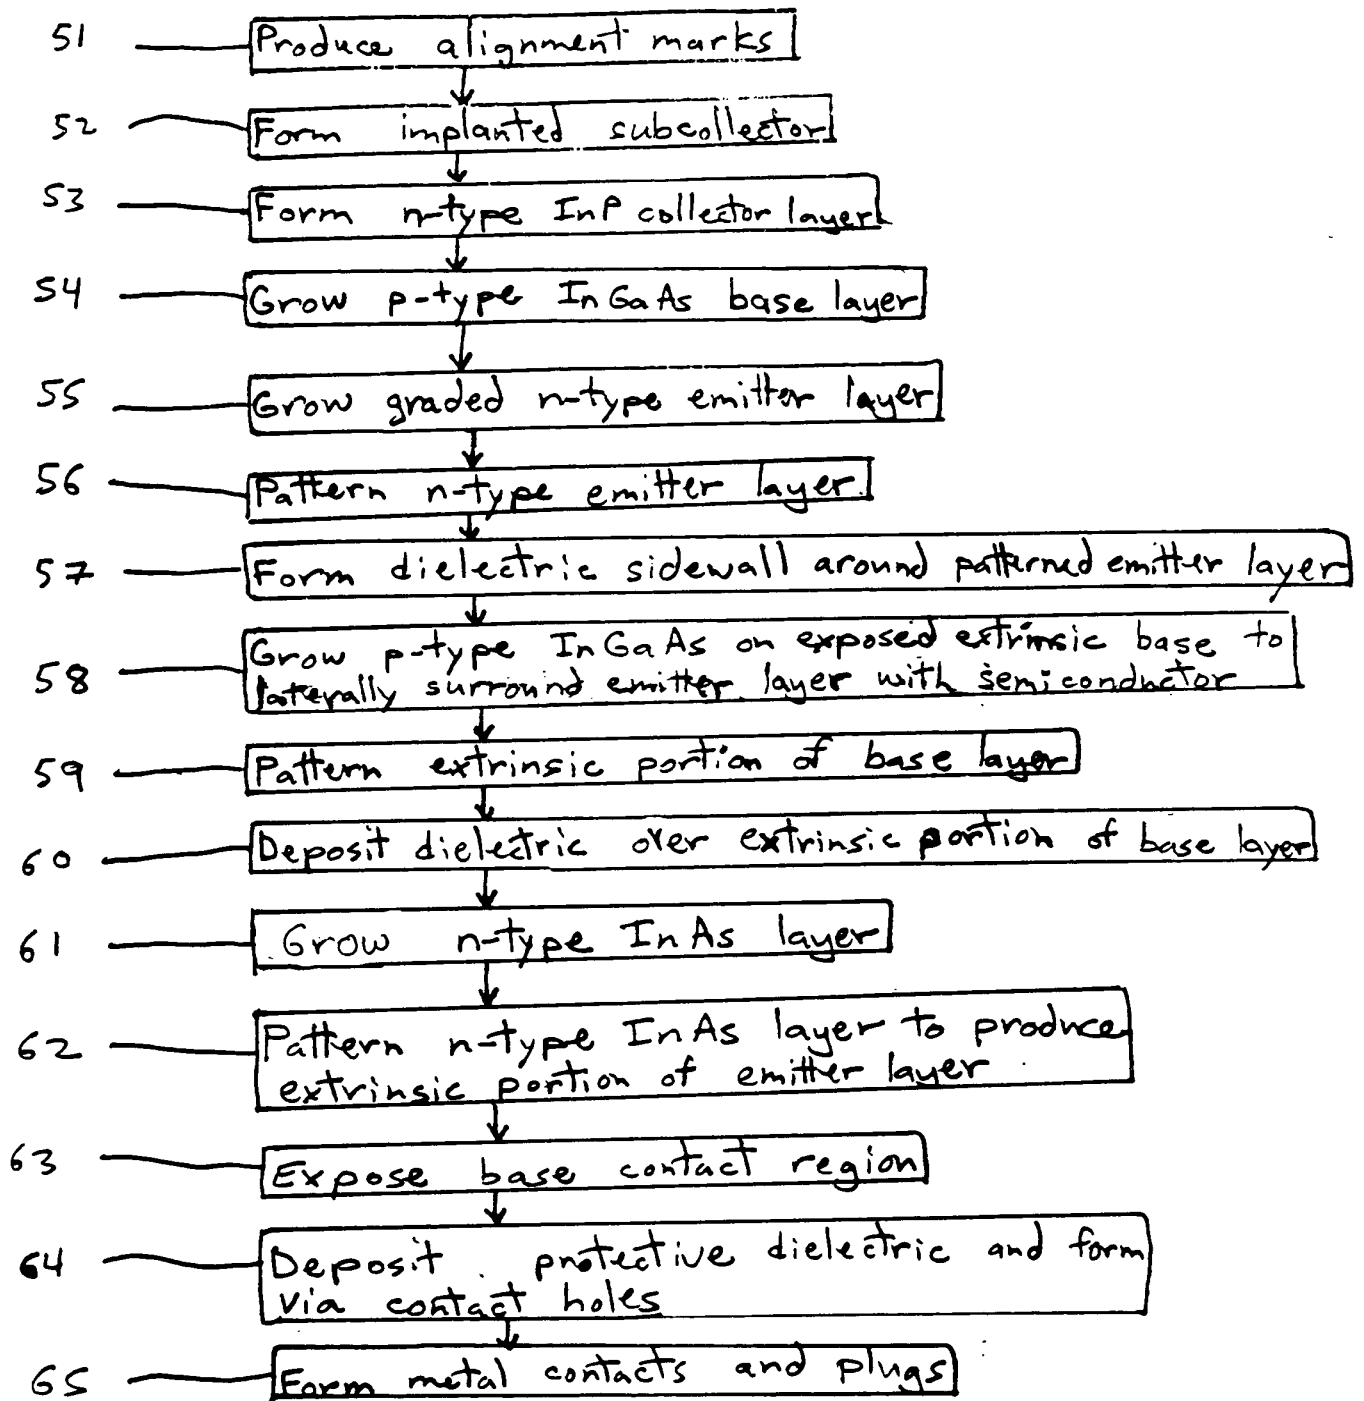 51 Produce alignment marks
52 Form implanted subcollector
53 Form n-type InP collector layer
54 Grow p-type InGaAs base layer
55 Grow graded n-type emitter layer
56 Pattern n-type emitter layer
57 Form dielectric sidewall around patterned emitter layer
58 Grow p-type InGaAs on exposed extrinsic base to
laterally surround emitter layer with semiconductor
59 Pattern extrinsic portion of base layer
60 Deposit dielectric over extrinsic portion of base layer
61 Grow n-type InAs layer
62 Pattern n-type InAs layer to produce
extrinsic portion of emitter layer
63 Expose base contact region
64 Deposit protective dielectric and form
via contact holes
65 Form metal contacts and plugs